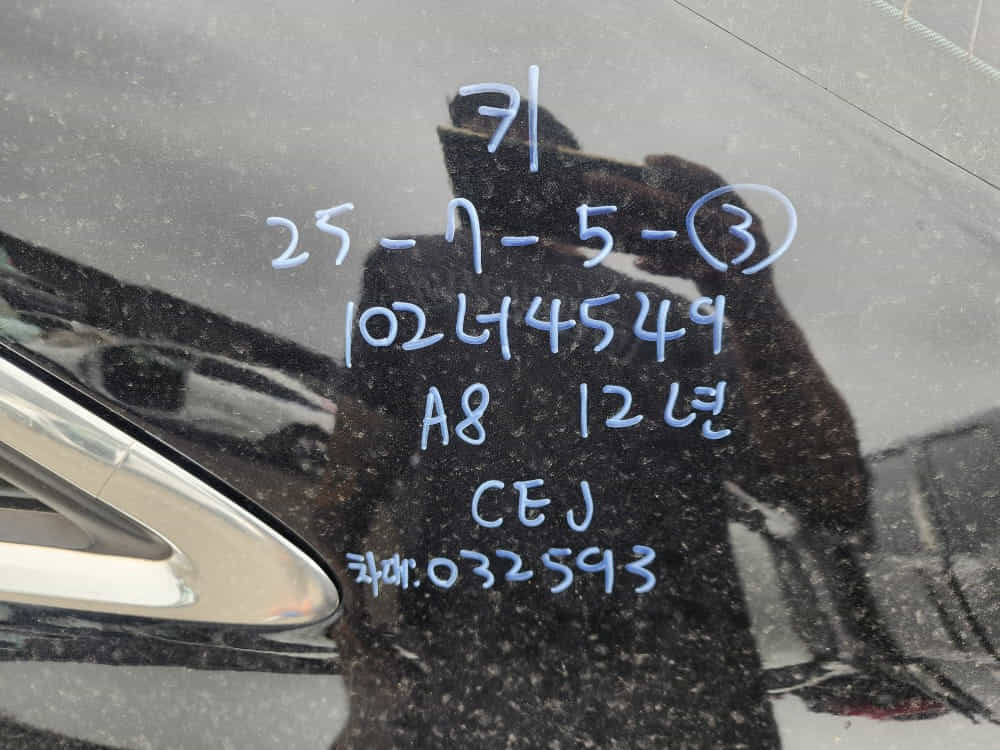 키
25-7-5-③
102너4549
A8 12년
CEJ
차대:032593